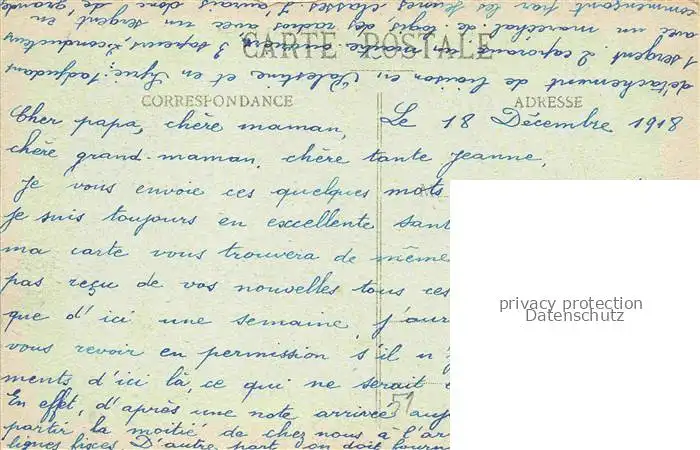 CARTE POSTALE
CORRESPONDANCE
ADRESSE
Le 18 Décembre 1918
Cher papa, chère maman,
chère grand-maman, chère tante Jeanne,
Je vous envoie ces quelques mots
Je suis toujours en excellente sant
ma carte vous trouvera de même
pas reçu de vos nouvelles tous ces
que d'ici une semaine, j'aur
vous revoir en permission s'il n'y
ments d'ici là, ce qui ne serait
En effet, d'après une note arrivée auj
partir la moitié de chez nous à l'ar
lignes fixes. D'autre part, on doit fourn
détachement de liaison en Palestine et en Syrie: 1 adjudant
1 sergent 2 caporaux 3 sapeurs, 2 conducteurs
avec un maréchal des logis, des radios avec un sergent en
commençant par les jeunes classes j'aurais donc de grande
51
privacy protection
Datenschutz